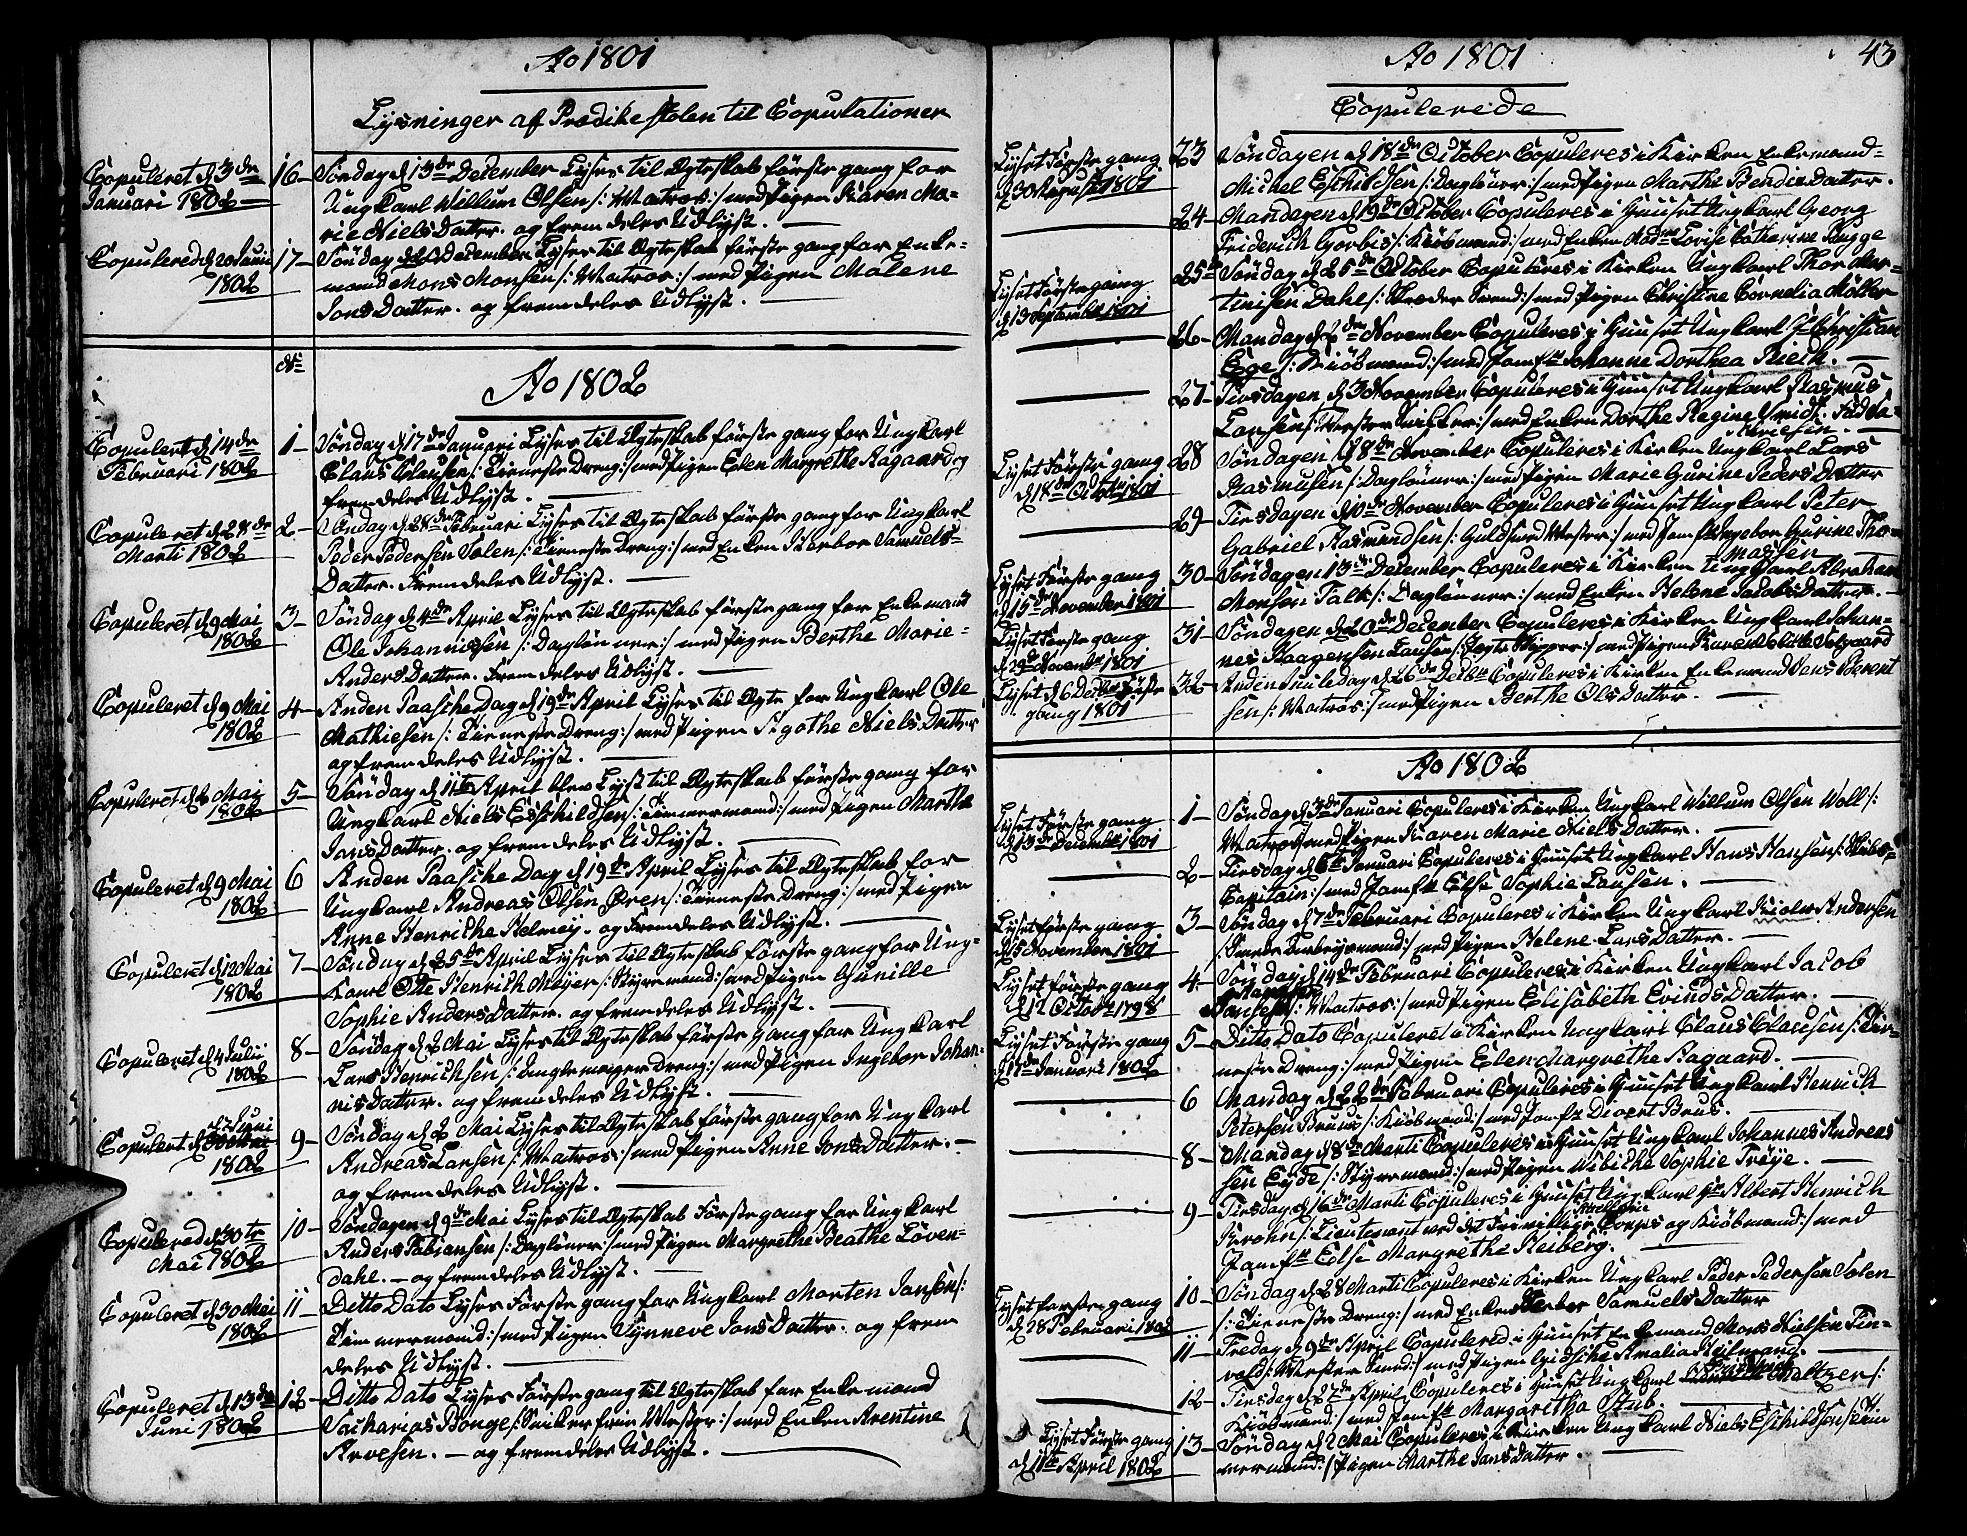 Ao 1801
Lysninger af Prædikestolen til Copulationer
Copuleret d. 3de
Januari 1802
16 Søndag d. 13de December Lyses til Ægteskab første gang for
Ungkarl Willum Olsen /: Matros :/ med Pigen Karen Ma-
rie Niels Datter. og fremdeles Udlyst.
Copulered d. 20 Juni
1802
17 Søndag d. December Lyses til Ægteskab første gang for Enke-
mand Mons Monsen /: Matros :/ med Pigen Malene
Jons Datter. og fremdeles Udlyst.
No
Ao 1802
Copulert d. 14de
Februari 1802
1 Søndag d. 17de Januari Lyses til Ægteskab første gang for Ungkarl
Claus Clausen /: Tieneste Dreng :/ med Pigen Elen Margrethe Aagaard og
fremdeles Udlyst.
Copuleret d. 28de
Marti 1802
2 Søndag d. 28de Februari Lyses til Ægteskab første gang for Ungkarl
Peder Pedersen Solen /: Tieneste Dreng :/ med Enken Samuels-
Datter. Fremdeles Udlyst.
Copuleret d. 9 Mai
1802
3 Søndag d. 4de April Lyses til Ægteskab første gang for Enkemand
Ole Johannissen /: Daglønner :/ med Pigen Berthe Marie
Anders Datter. Fremdeles Udlyst.
Copuleret d. 9 Mai
1802
4 Anden Paasche Dag d. 19de April Lyses til Ægte for Ungkarl Ole
Mathiesen /: Tieneste Dreng :/ med Pigen Agothe Niels Datter
og fremdeles Udlyst.
Copuleret d. 2 Mai
1802
5 Søndag d. 11te April blev Lyst til Ægteskab første gang for
Ungkarl Niels Eschildsen /: Tømmermand :/ med Pigen Marthe
Jans Datter. og fremdeles Udlyst.
Copuleret d. 9 Mai
1802
6 Anden Paasche Dag d. 19de April Lyses til Ægteskab for
Ungkarl Andreas Olsen Øren /: Tieneste Dreng :/ med Pigen
Anne Henriche Helmey. og Fremdeles Udlyst.
Copuleret d. 12 Mai
1802
7 Søndag d. 25de April Lyses til Ægteskab første gang for Ung-
Karl Ole Henrich Meyer /: Styremand :/ med Pigen Gunille
Sophie Anders Datter. og fremdeles Udlyst.
Copuleret d. 4 Julii
1802
8 Søndag d. 2 Mai Lyses til Ægteskab første gang for Ungkarl
Lars Henrichsen /: Dreng :/ med Pigen Ingebor Johan-
nis Datter. og fremdeles Udlyst.
Juni
Copulert d.
1802
9 Søndag d. 2 Mai Lyses til Ægteskab første gang for Ungkarl
Andreas Larsen /: Matros :/ med Pigen Anne Jons Datter.
og fremdeles Udlyst.
Copulered d. 30te
Mai 1802
10 Søndagen d. 9de Mai Lyses til Ægteskab Første gang for Ungkarl
Anders Fabiansen /: Dagløner :/ med Pigen Margrethe Beathe Løven-
dahl. og fremdeles Udlyst.
Copuleret d. 30 Mai
1802
11 Ditto Dato Lyses Første gang for Ungkarl Morten Jansen /:
Timmermand :/ med Pigen Synneve Jons Datter. og frem
deles Udlyst.
Copuleret d. 13de
Juni 1802
12 Ditto Dato Lyses Første gang til Ægteskab for Enkemand
Zacharias Bonge /: Mester :/ med Enken Arentine
Arvesen. og fremdeles Udlyst.
Ao 1801
43
Copulerede
Lyset Første gang
d. 30 August 1801
23 Søndagen d. 18de October Copuleres i Kirken Enkemand
Michel Eschildsen /: Dagløner :/ med Pigen Marthe Bendix Datter.
24 Mandagen d. 19de October Copuleres i Huuset Ungkarl Georg
Friderich Gorbis /: Kiøbmand :/ med Enken Madme Lovise Catharine Bugge
Lyset Første gang
d. 13 September 1801
25 Søndag d. 25de October Copuleres i Kirken Ungkarl Thor Mar-
tinisen Dahl /: Skræder Svend :/ med Pigen Christine Cornelia Møller
26 Mandag d. 2de November Copuleres i Huuset Ungkarl Christian
Ege /: Kiøbmand :/ med Jomfr. Johanne Dorthea Rieck.
27 Tirsdagen d. 3 November Copuleres i Huuset Ungkarl Rasmus
Larsen /: :/ med Enken Dorthe Regine Smidt. Fød
Lyset Første gang
d. 18de Octob. 1801
28 Søndagen d. 8de November Copuleres i Kirken Ungkarl Lars
Rasmusen /: Dagløner :/ med Pigen Marie Gurine Peders Datter
29 Tirsdagen d. 10de November Copuleres i Huuset Ungkarl Peter
Gabriel Rasmundsen /: Guldsmed Mester :/ med Jomfr. Ingebor Gurine Tho-
massen
Lyset Første gang
d. 15de November 1801
30 Søndagen 13de December Copuleres i Kirken Ungkarl Abraham
Monsen Falk /: Dagløner :/ med Enken Helene Jacobs Datter.
Lyset Første gang
d. 29de Novembr 1801
31 Søndagen d. 20de December Copuleres i Kirken Ungkarl Johan-
nes Haagensen Lausen /: Jagte Skipper :/ med Pigen Karen Velgaard
Lyset d. 6 Decbr Første
gang 1801
32 Anden Juuledag d. 26de Decbr Copuleres i Kirken Enkemand Jens Berent
sen /: Matros :/ med Pigen Berthe Ols Datter.
Ao 1802
Lyset Første gang
d. 13de December 1801
1 Søndag d. 3de Januari Copuleres i Kirken Ungkarl Willum Olsen Woll /:
Matros :/ med Pigen Karen Marie Niels Datter.
2 Tirsdag d. Januari Copuleres i Huuset Ungkarl Hans Hansen /: Skibs-
Capitain :/ med Jomfr. Else Sophie Lausen.
Lyset første gang
d. 15 November 1801
3 Søndag d. 7de Februari Copuleres i Kirken Ungkarl Andersen
/: :/ med Pigen Helene Lars Datter.
Lyset første gang
d. 12 Octob. 1798
4 Søndag d. 14de Februari Copuleres i Kirken Ungkarl Jacob
Jansen /: Matros :/ med Pigen Elisabeth Evinds Datter.
Lyset Første gang
d. 17de Januari 1802
5 Ditto Dato Copuleret i Kirken Ungkarl Claus Clausen /: Tie-
neste Dreng :/ med Pigen Elen Margrethe Aagaard.
6 Mandag d. 22de Februari Copuleres i Huuset Ungkarl Henrich
Petersen Bruus /: Kiøbmand :/ med Jomfr. Divert Brus.
8 Mandag d. 8de Marti Copuleres i Huuset Ungkarl Johannes Andreas
sen Eyde /: Styremand :/ med Pigen Wibiche Sophie Trøye.
9 Tirsdag d. 16de Marti Copuleres i Huuset Ungkarl Hr. Albert Henrich
Krohn /: Lieutenant ved det Frivillige Corps og Kiøbmand :/ med
Jomfr. Else Margrethe Heiberg.
Lyset første gang
d. 28 Februari 1802
10 Søndag d. 28 Marti Copuleres i Kirken Ungkarl Peder Pedersen Solen
/: Tieneste Dreng :/ med Enken Samuels Datter
11 Fredag d. 9de April Copulered i Huuset Enkemand Mons Nielsen Tin-
vold /: Mester Smed :/ med Pigen Amalia Reismand.
12 Tirsdag d. 27de April Copuleres i Huuset Ungkarl Friderich Maltzer /:
Kiøbmand :/ med Jomfr. Margaritha Stub.
Lyset Første gang
d. 11te April 1802
13 Søndag d. 2 Mai Copuleres i Kirken Ungkarl Niels Eschildsen /: Tim
mermand :/ Pigen Marthe Jans Datter.